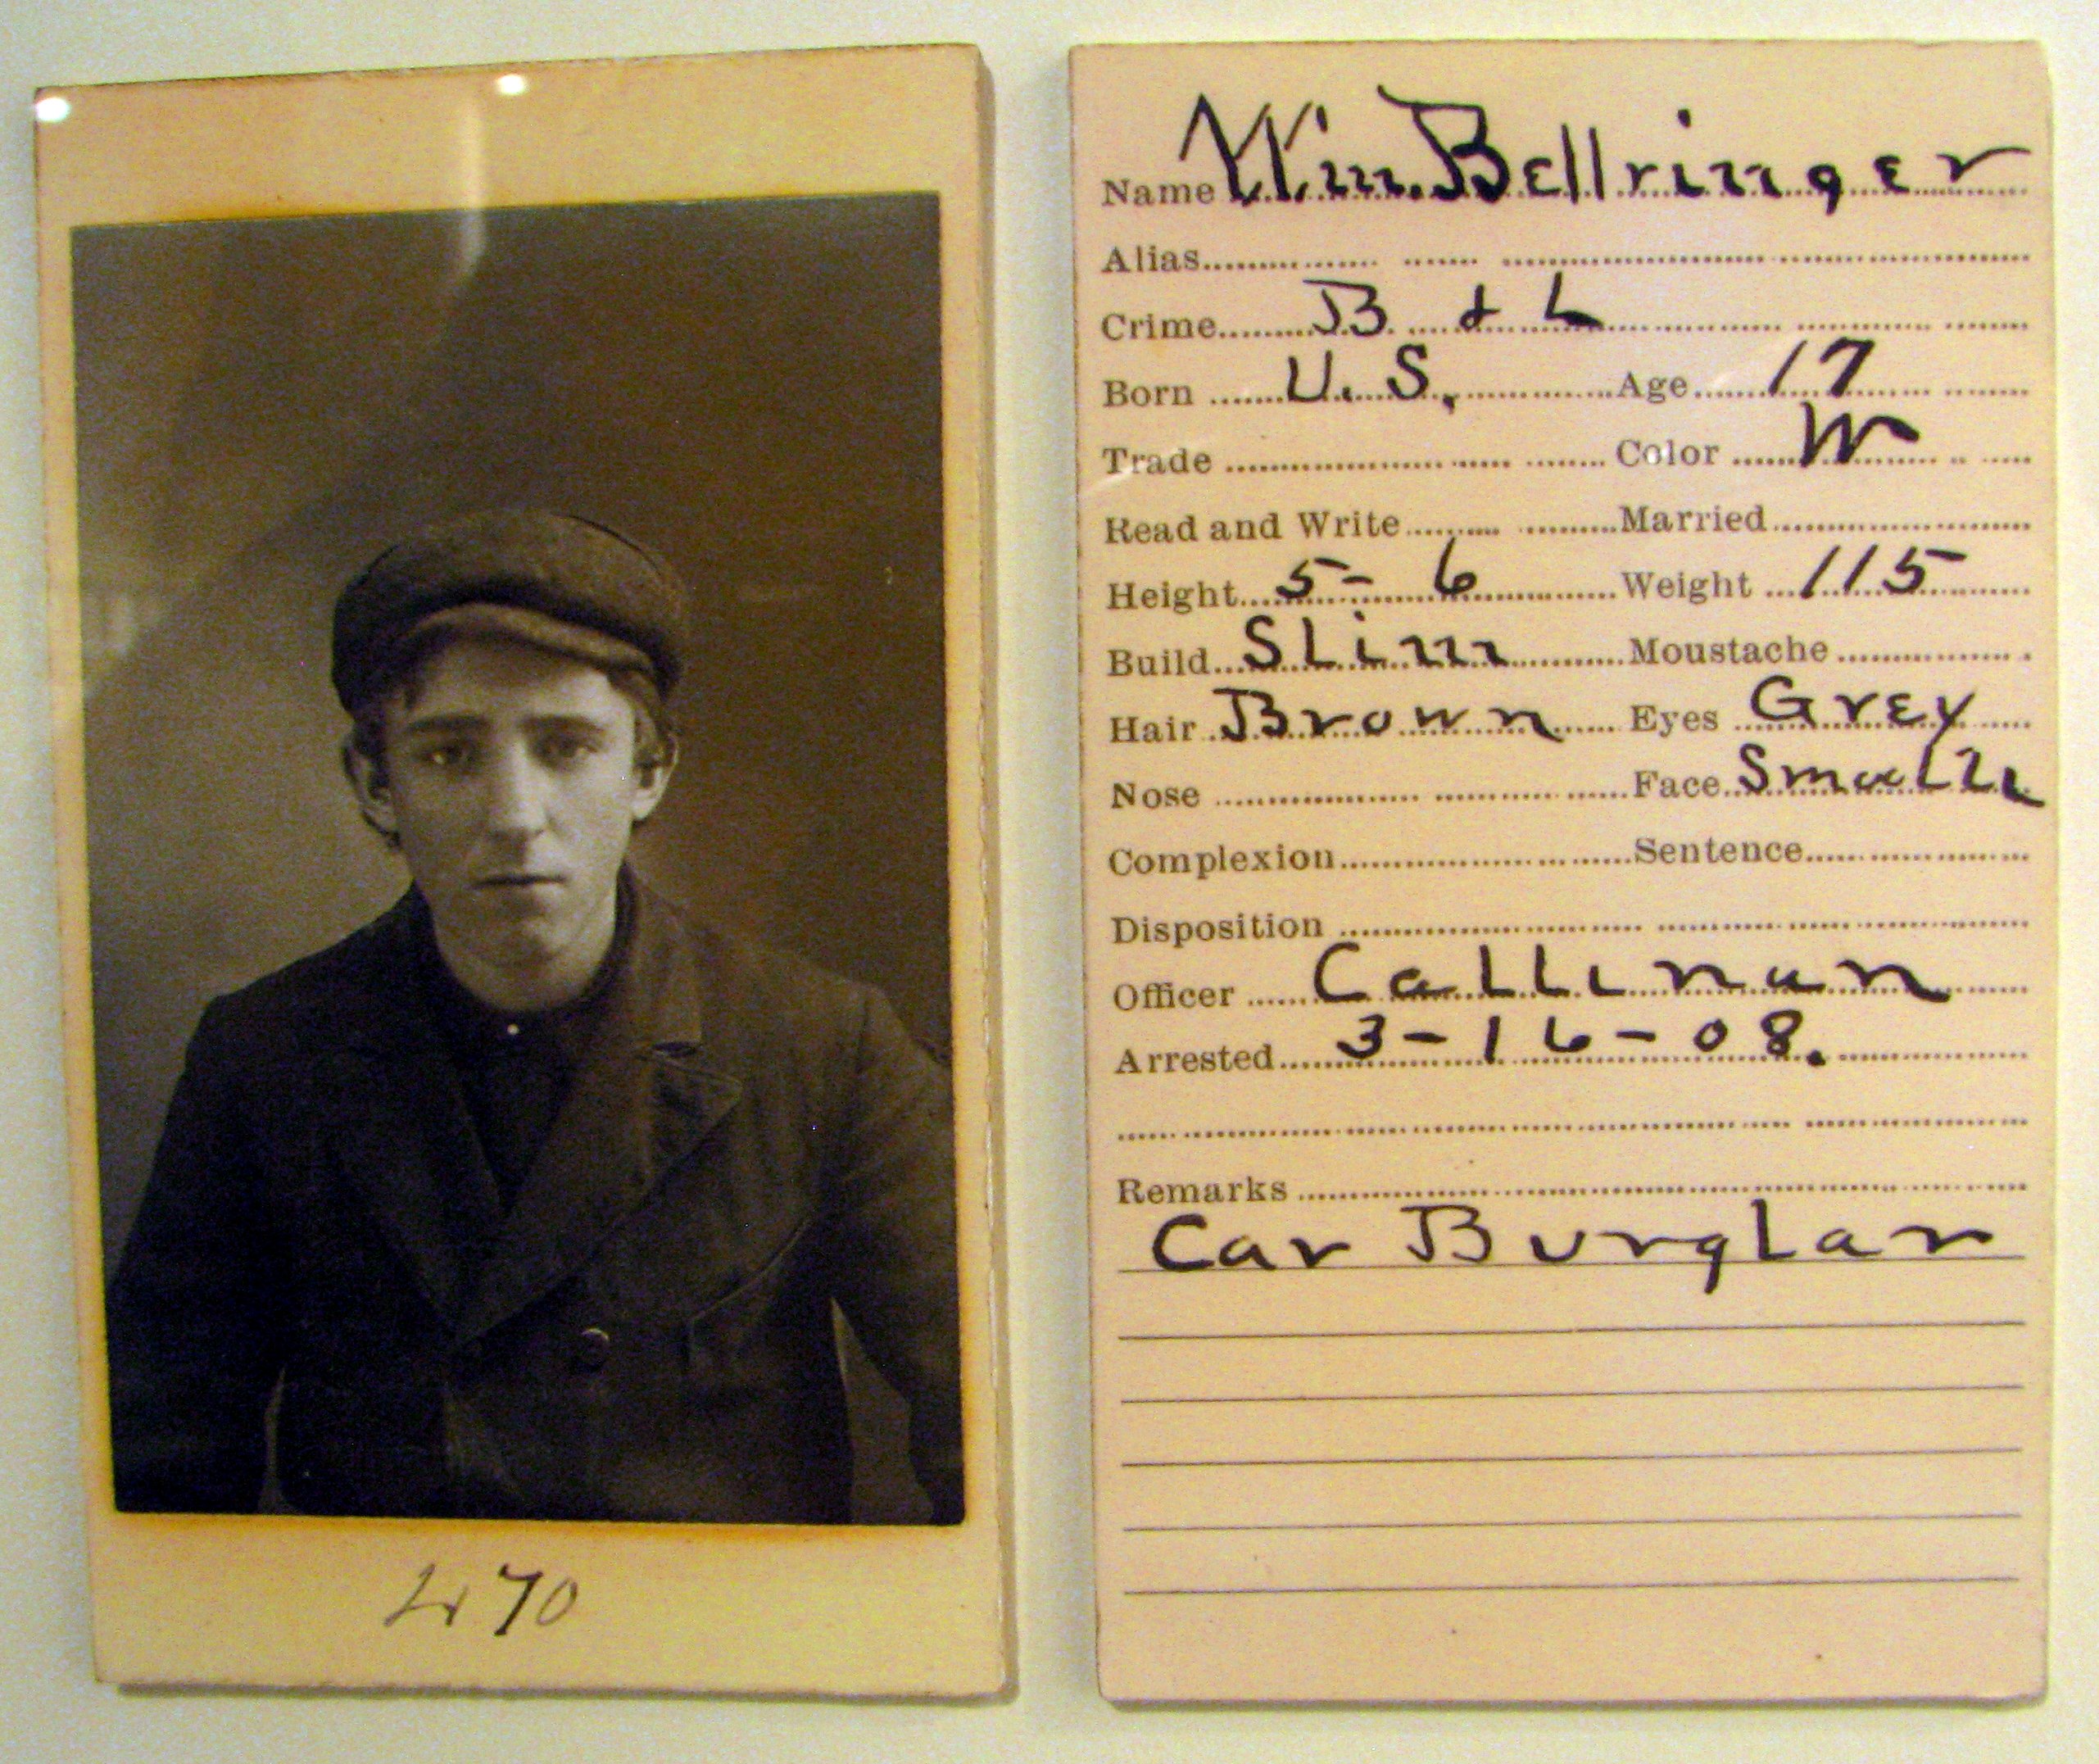 470
Name Wm. Bellringer
Alias
Crime B & L
Born U.S. Age 17
Trade Color W
Read and Write Married
Height 5-6 Weight 115
Build Slim Moustache
Hair Brown Eyes Grey
Nose Face Small
Complexion Sentence
Disposition
Officer Callinan
Arrested 3-16-08.
Remarks
Car Burglar